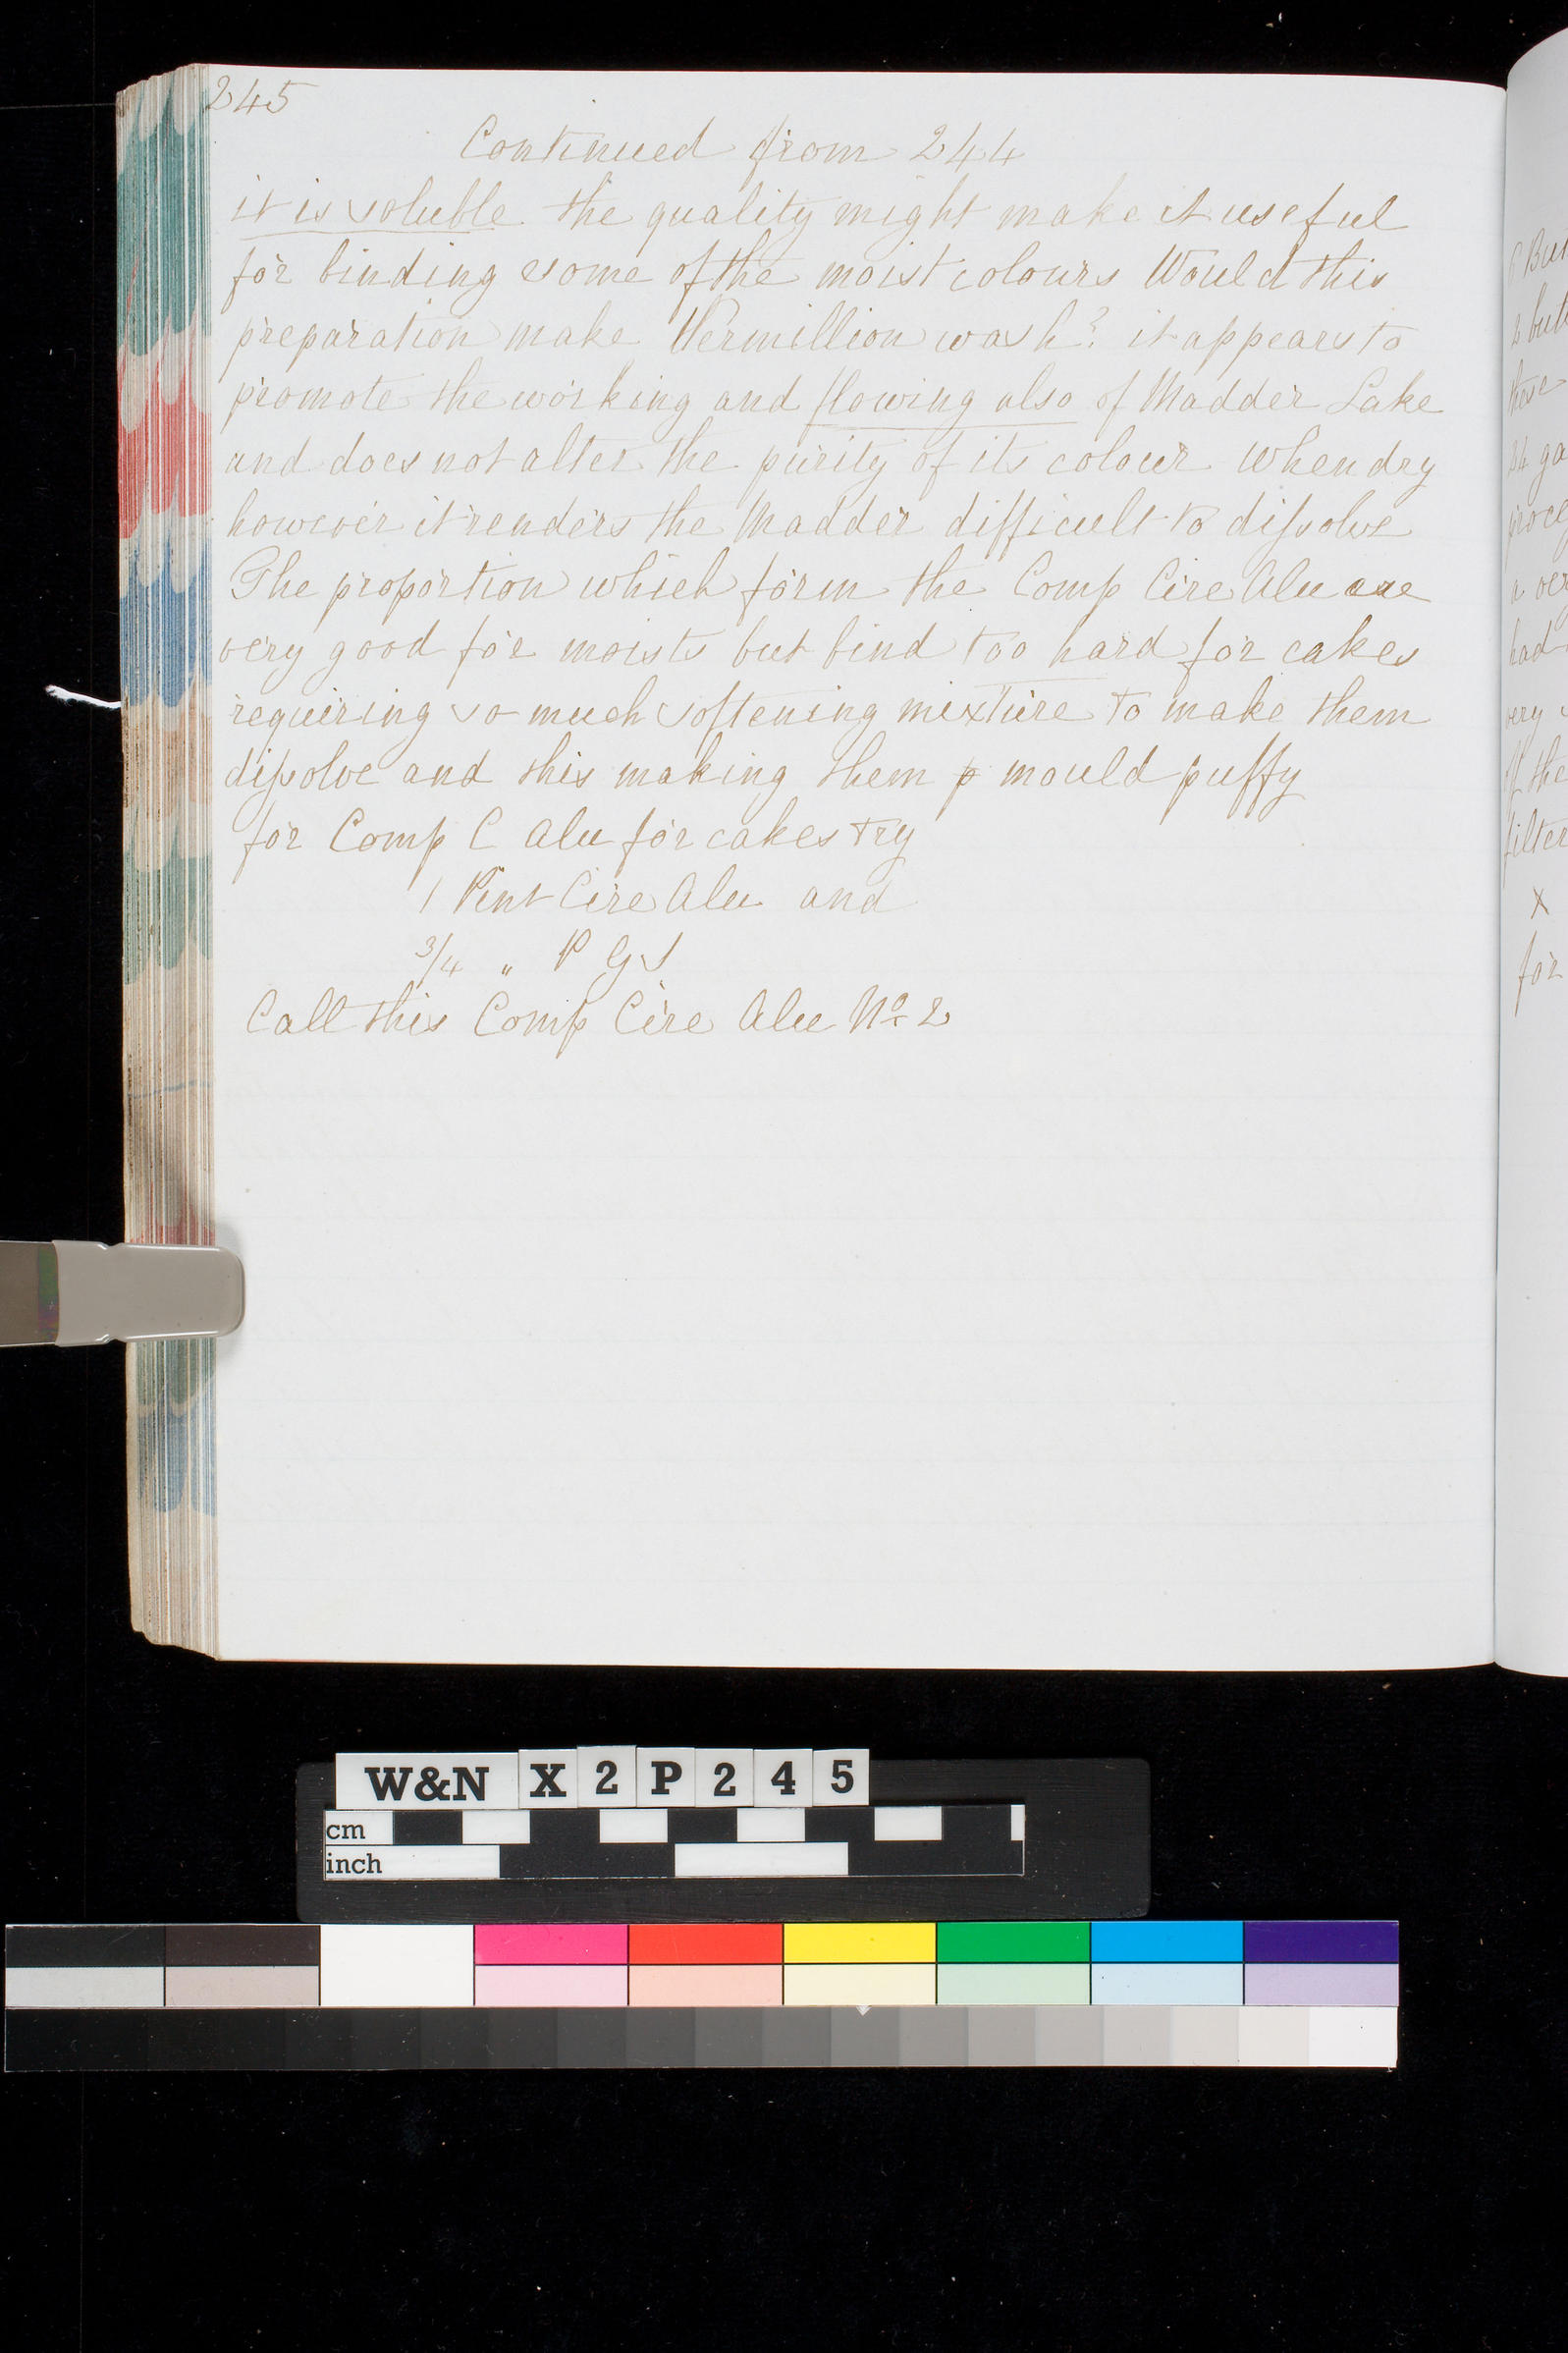 245
Continued from 244
it is soluble the quality might make it useful
for binding some of the moist colours Would this
preparation make Vermillion wash? it appears to
promote the working and flowing also of Madder Lake
and does not alter the purity of its colour when dry
however it renders the Madder difficult to dissolve
The proportion which form the Comp Cire Alu are
very good for moists but bind too hard for cakes
requiring so much softening mixture to make them
dissolve and this making them p mould puffy
for Comp C Alu for cakes try
1 Pint Cire Alu and
3/4 " P G S
Call this Comp Cire Alu No 2
but
those
24 ga
proce
a ver
had
very
of the
filter
x
for
W&N X 2 P 2 4 5
cm
inch